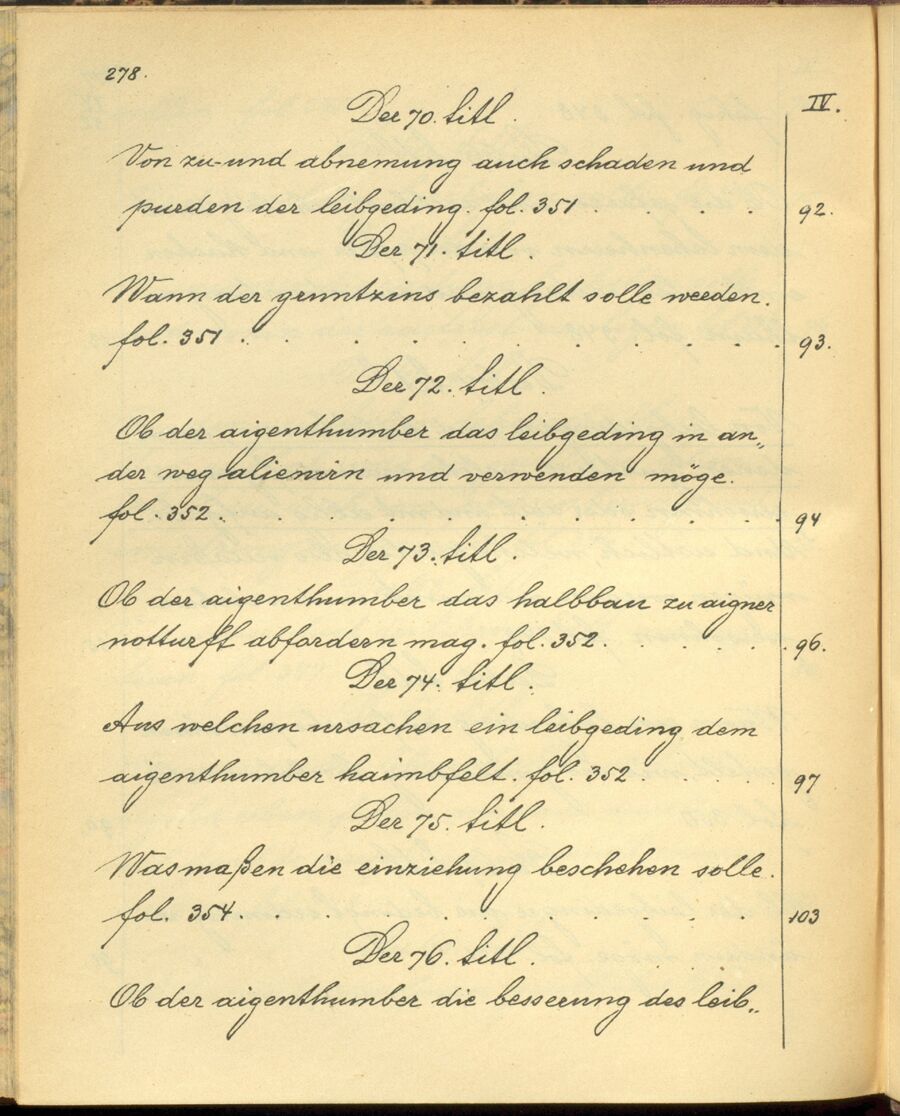 278.
IV.
Der 70. titl.
Von zu- und abnemung auch schaden und
purden der leibgeding. fol. 351 . . . . 92.
Der 71. titl.
Wann der gruntzins bezahlt solle werden.
fol. 351 . . . . . . . . . . 93.
Der 72. titl.
Ob der aigenthumber das leibgeding in an„
der weg alienirn und verwenden möge.
fol. 352. . . . . . . . . . . 94
Der 73. titl.
Ob der aigenthumber das halbbau zu aigner
notturfft abfordern mag. fol. 352. . . . . 96.
Der 74. titl.
Aus welchen ursachen ein leibgeding dem
aigenthumber haimbfelt. fol. 352 . . . 97
Der 75. titl.
Wasmaßen die einziehung beschehen solle.
fol. 354. . . . . . . . . . . 103
Der 76. titl.
Ob der aigenthumber die besserung des leib„